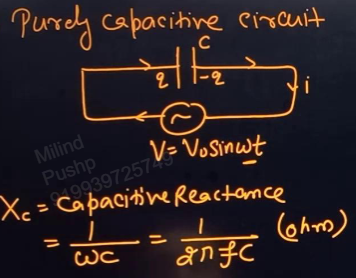 Purely capacitive circuit
C
q -q
i
V = V₀ sinωt
Milind
Pushp
919939725743
Xc = Capacitive Reactance
= 1/ωC = 1/2πfC (ohm)